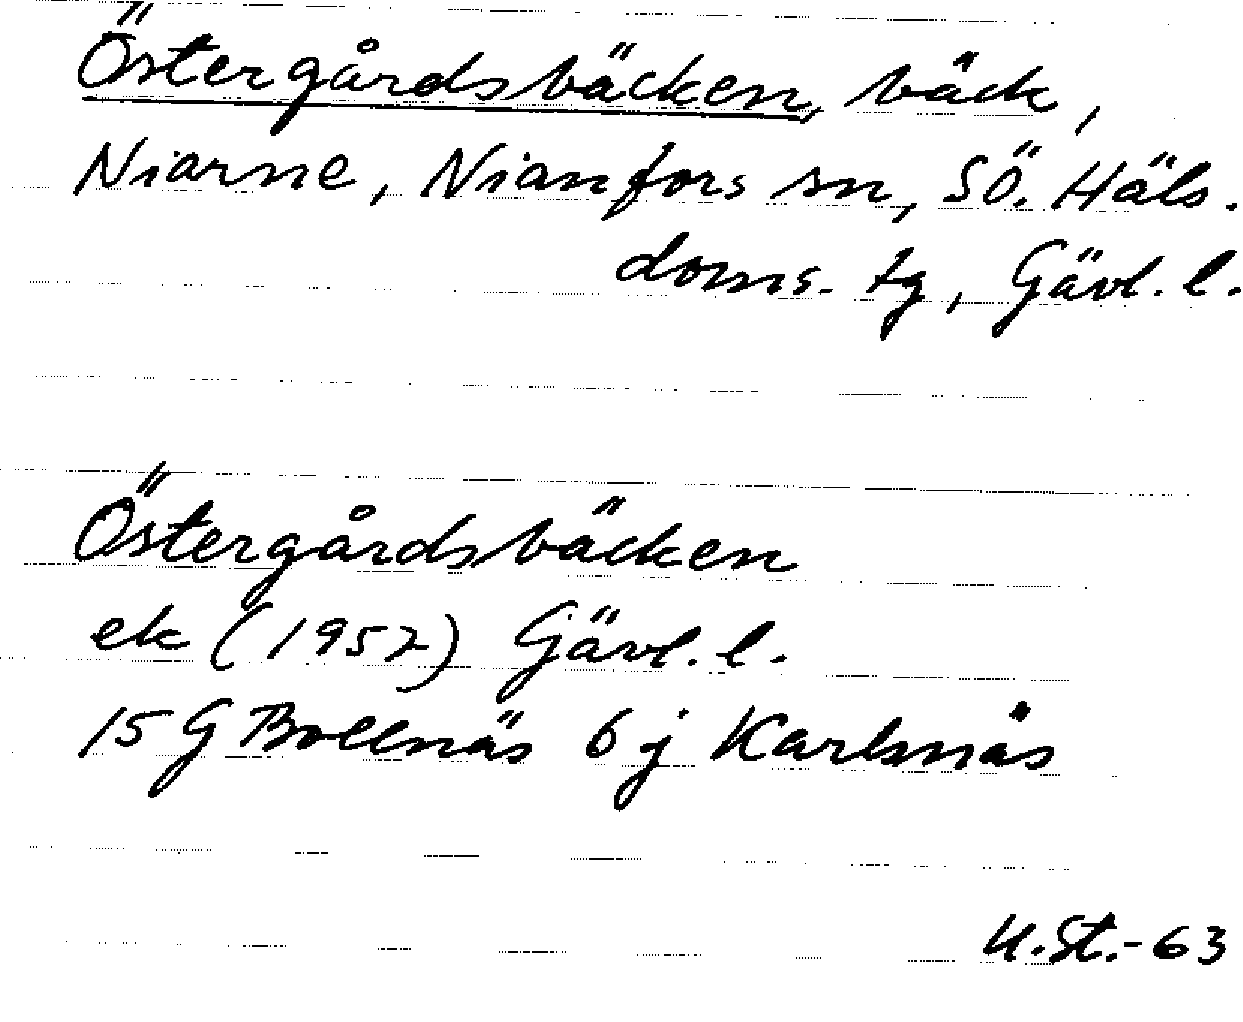 Östergårdsbäcken, bäck,
Niarne, Nianfors sn, SÖ. Häls.
doms. tg, Gävl. l.
Östergårdsbäcken
ek (1952) Gävl. l.
15 G Bollnäs 6 j Karlsnäs
U.St.-63